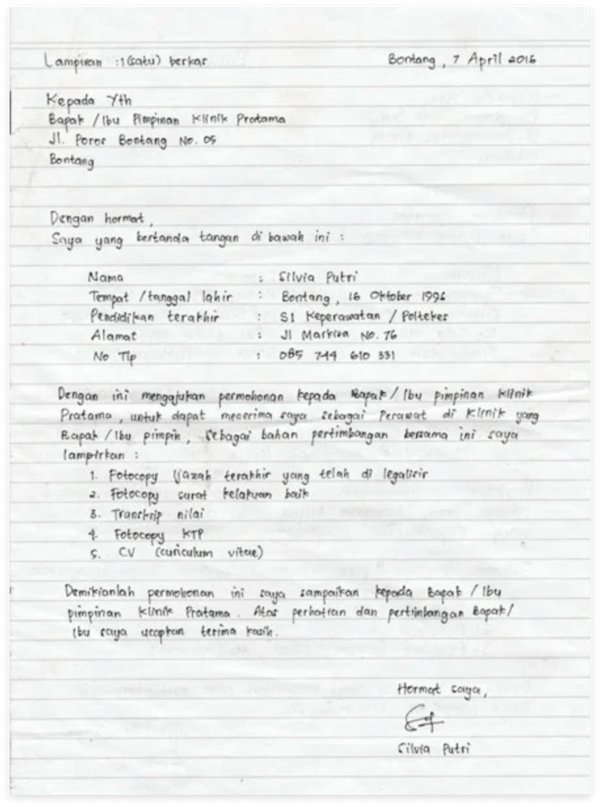 Lampiran : 1 (satu) berkas
Bontang, 7 April 2016
Kepada Yth
Bapak / Ibu Pimpinan Klinik Pratama
Jl. Poros Bontang No. 05
Bontang
Dengan hormat,
Saya yang bertanda tangan di bawah ini :
Nama : Silvia Putri
Tempat / tanggal lahir : Bontang, 16 Oktober 1996
Pendidikan terakhir : S1 Keperawatan / Poltekes
Alamat : Jl Markisa No. 76
No Tlp : 085 744 610 331
Dengan ini mengajukan permohonan kepada Bapak / Ibu pimpinan Klinik
Pratama, untuk dapat menerima saya sebagai Perawat di Klinik yang
Bapak / Ibu pimpin, sebagai bahan pertimbangan bersama ini saya
lampirkan :
1. Fotocopy Ijazah terakhir yang telah di legalisir
2. Fotocopy surat kelakuan baik
3. Transkrip nilai
4. Fotocopy KTP
5. CV (curiculum vitae)
Demikianlah permohonan ini saya sampaikan kepada Bapak / Ibu
pimpinan Klinik Pratama. Atas perhatian dan pertimbangan Bapak /
Ibu saya ucapkan terima kasih.
Hormat saya,
Silvia Putri